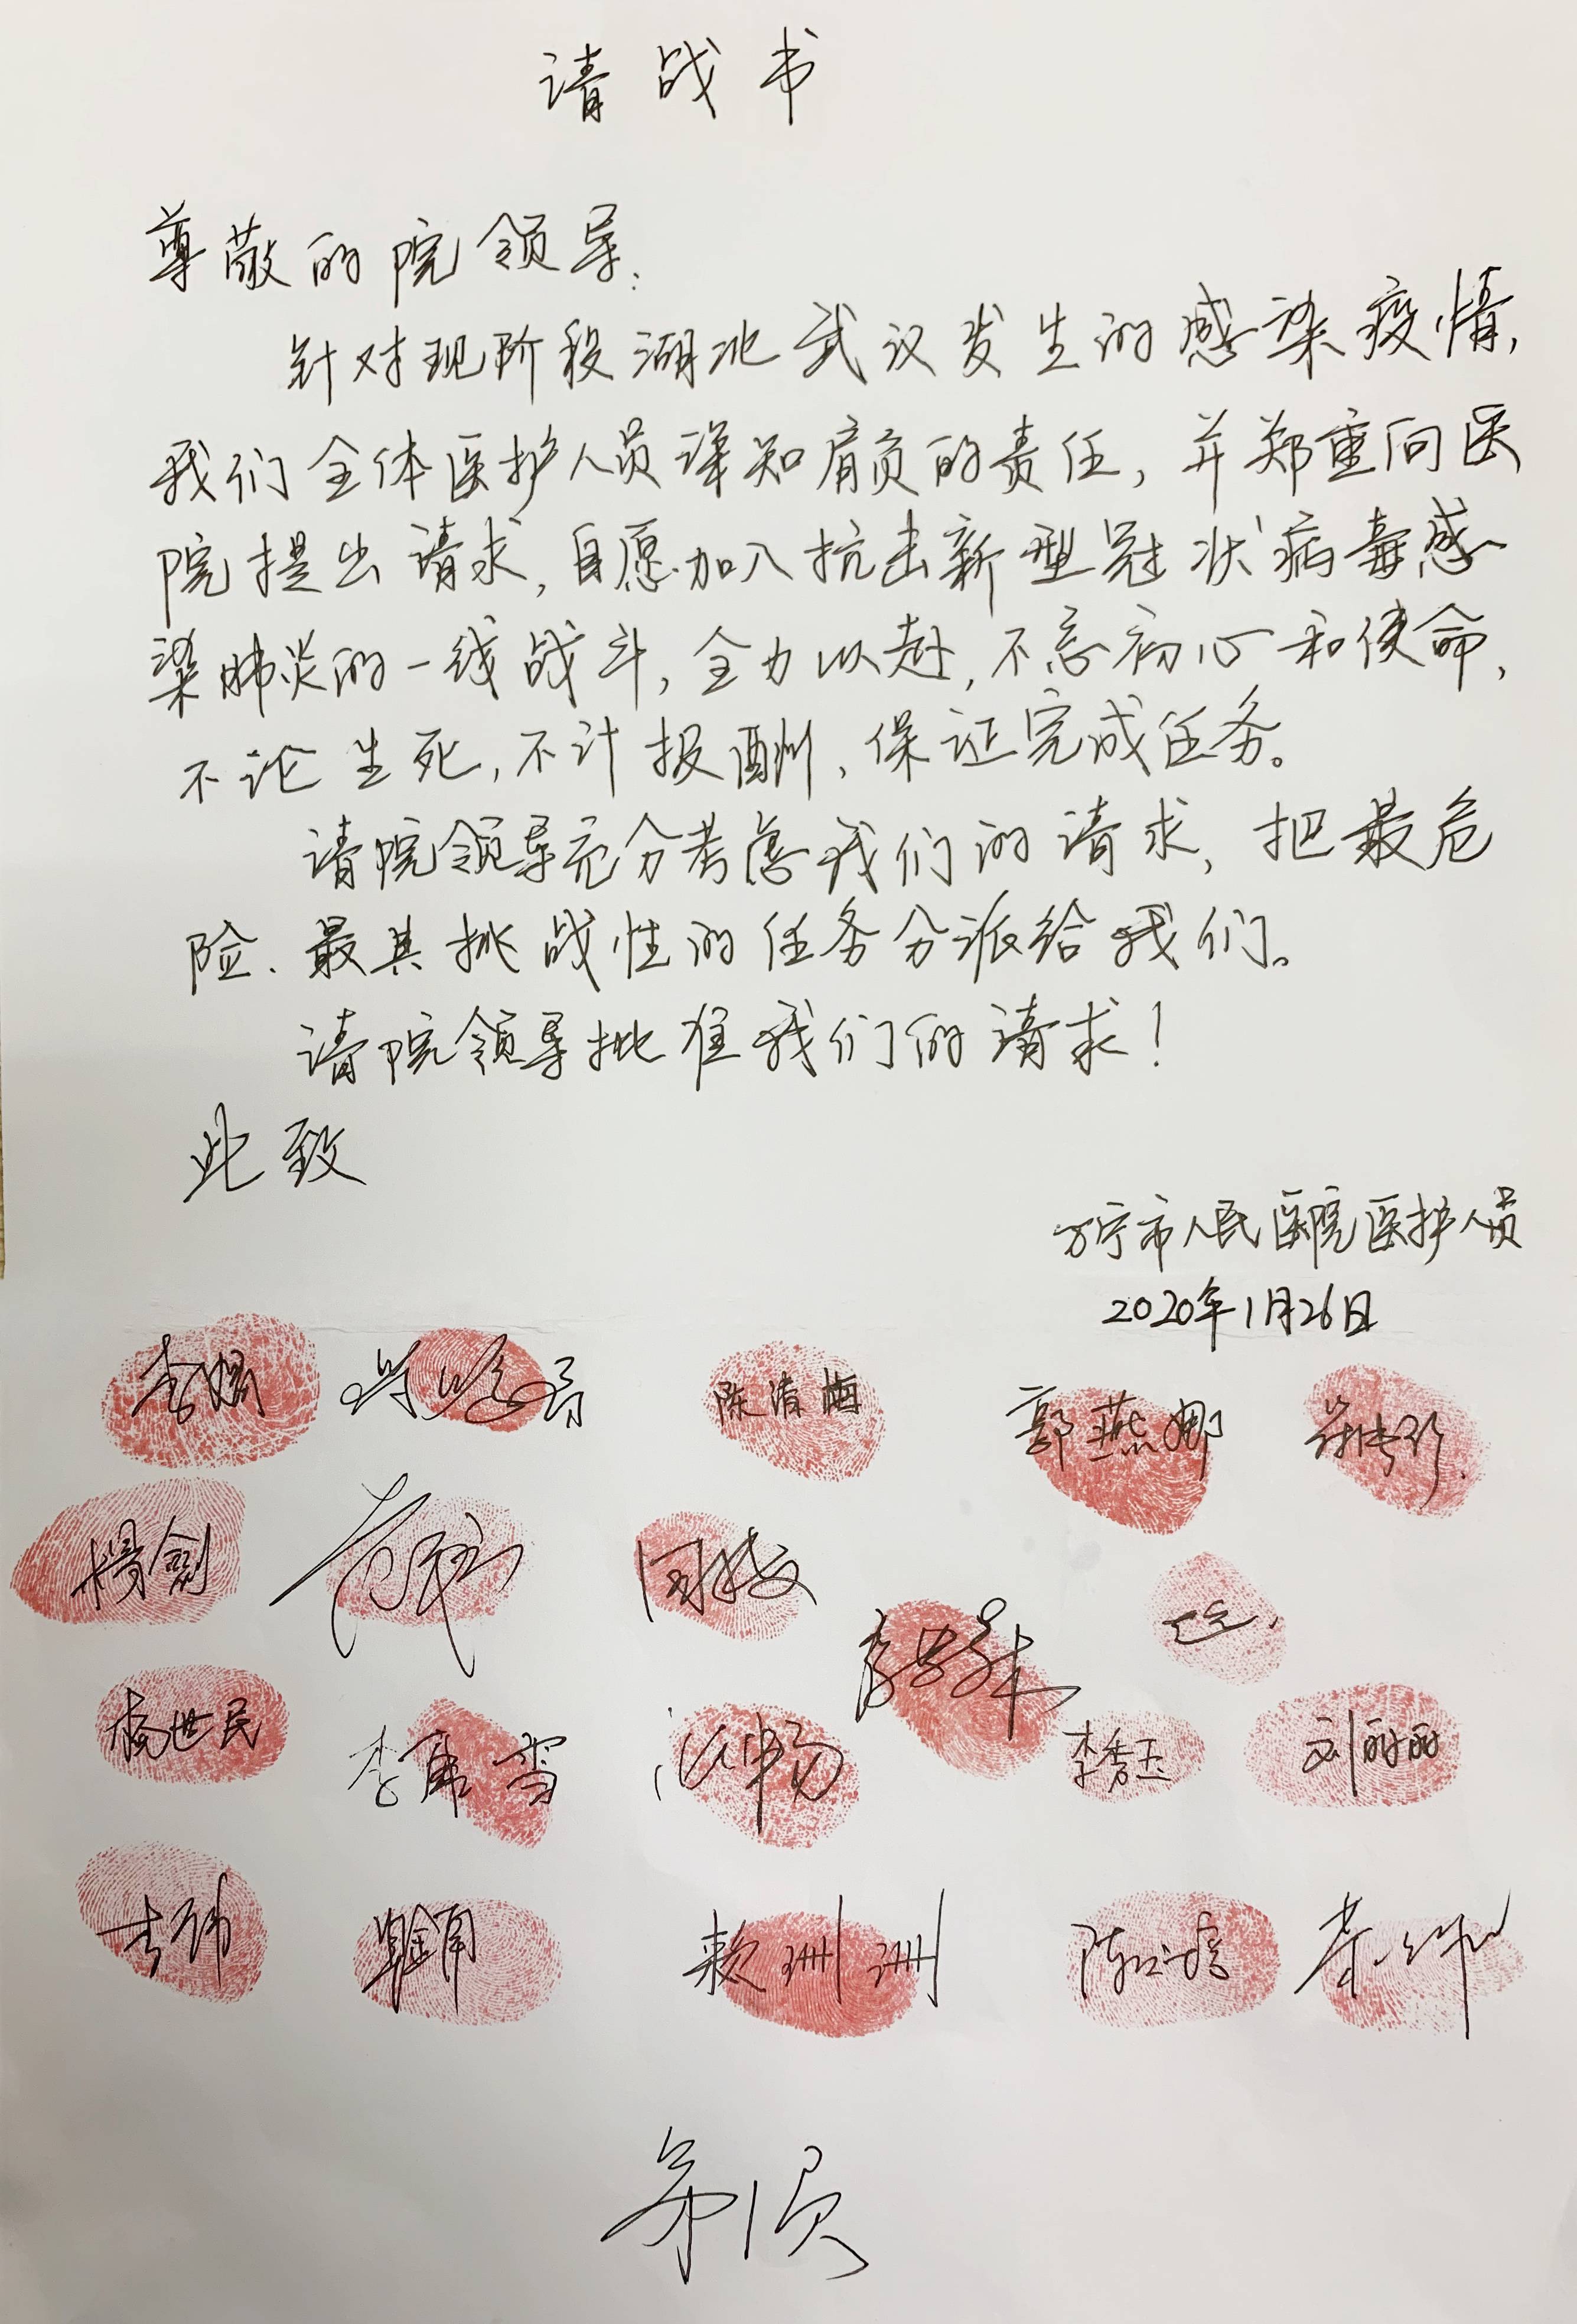 请战书
尊敬的院领导:
针对现阶段湖北武汉发生的感染疫情,
我们全体医护人员深知肩负的责任,并郑重向医
院提出请求,自愿加入抗击新型冠状病毒感
染肺炎的一线战斗,全力以赴,不忘初心和使命,
不论生死,不计报酬、保证完成任务。
请院领导充分考虑我们的请求,把最危
险、最具挑战性的任务分派给我们。
请院领导批准我们的请求!
此致
万宁市人民医院医护人员
2020年1月26日
陈清梅 郭燕娜
杨剑
杨世民 李秀玉 刘丽丽
李伟 赖洲洲
第1页